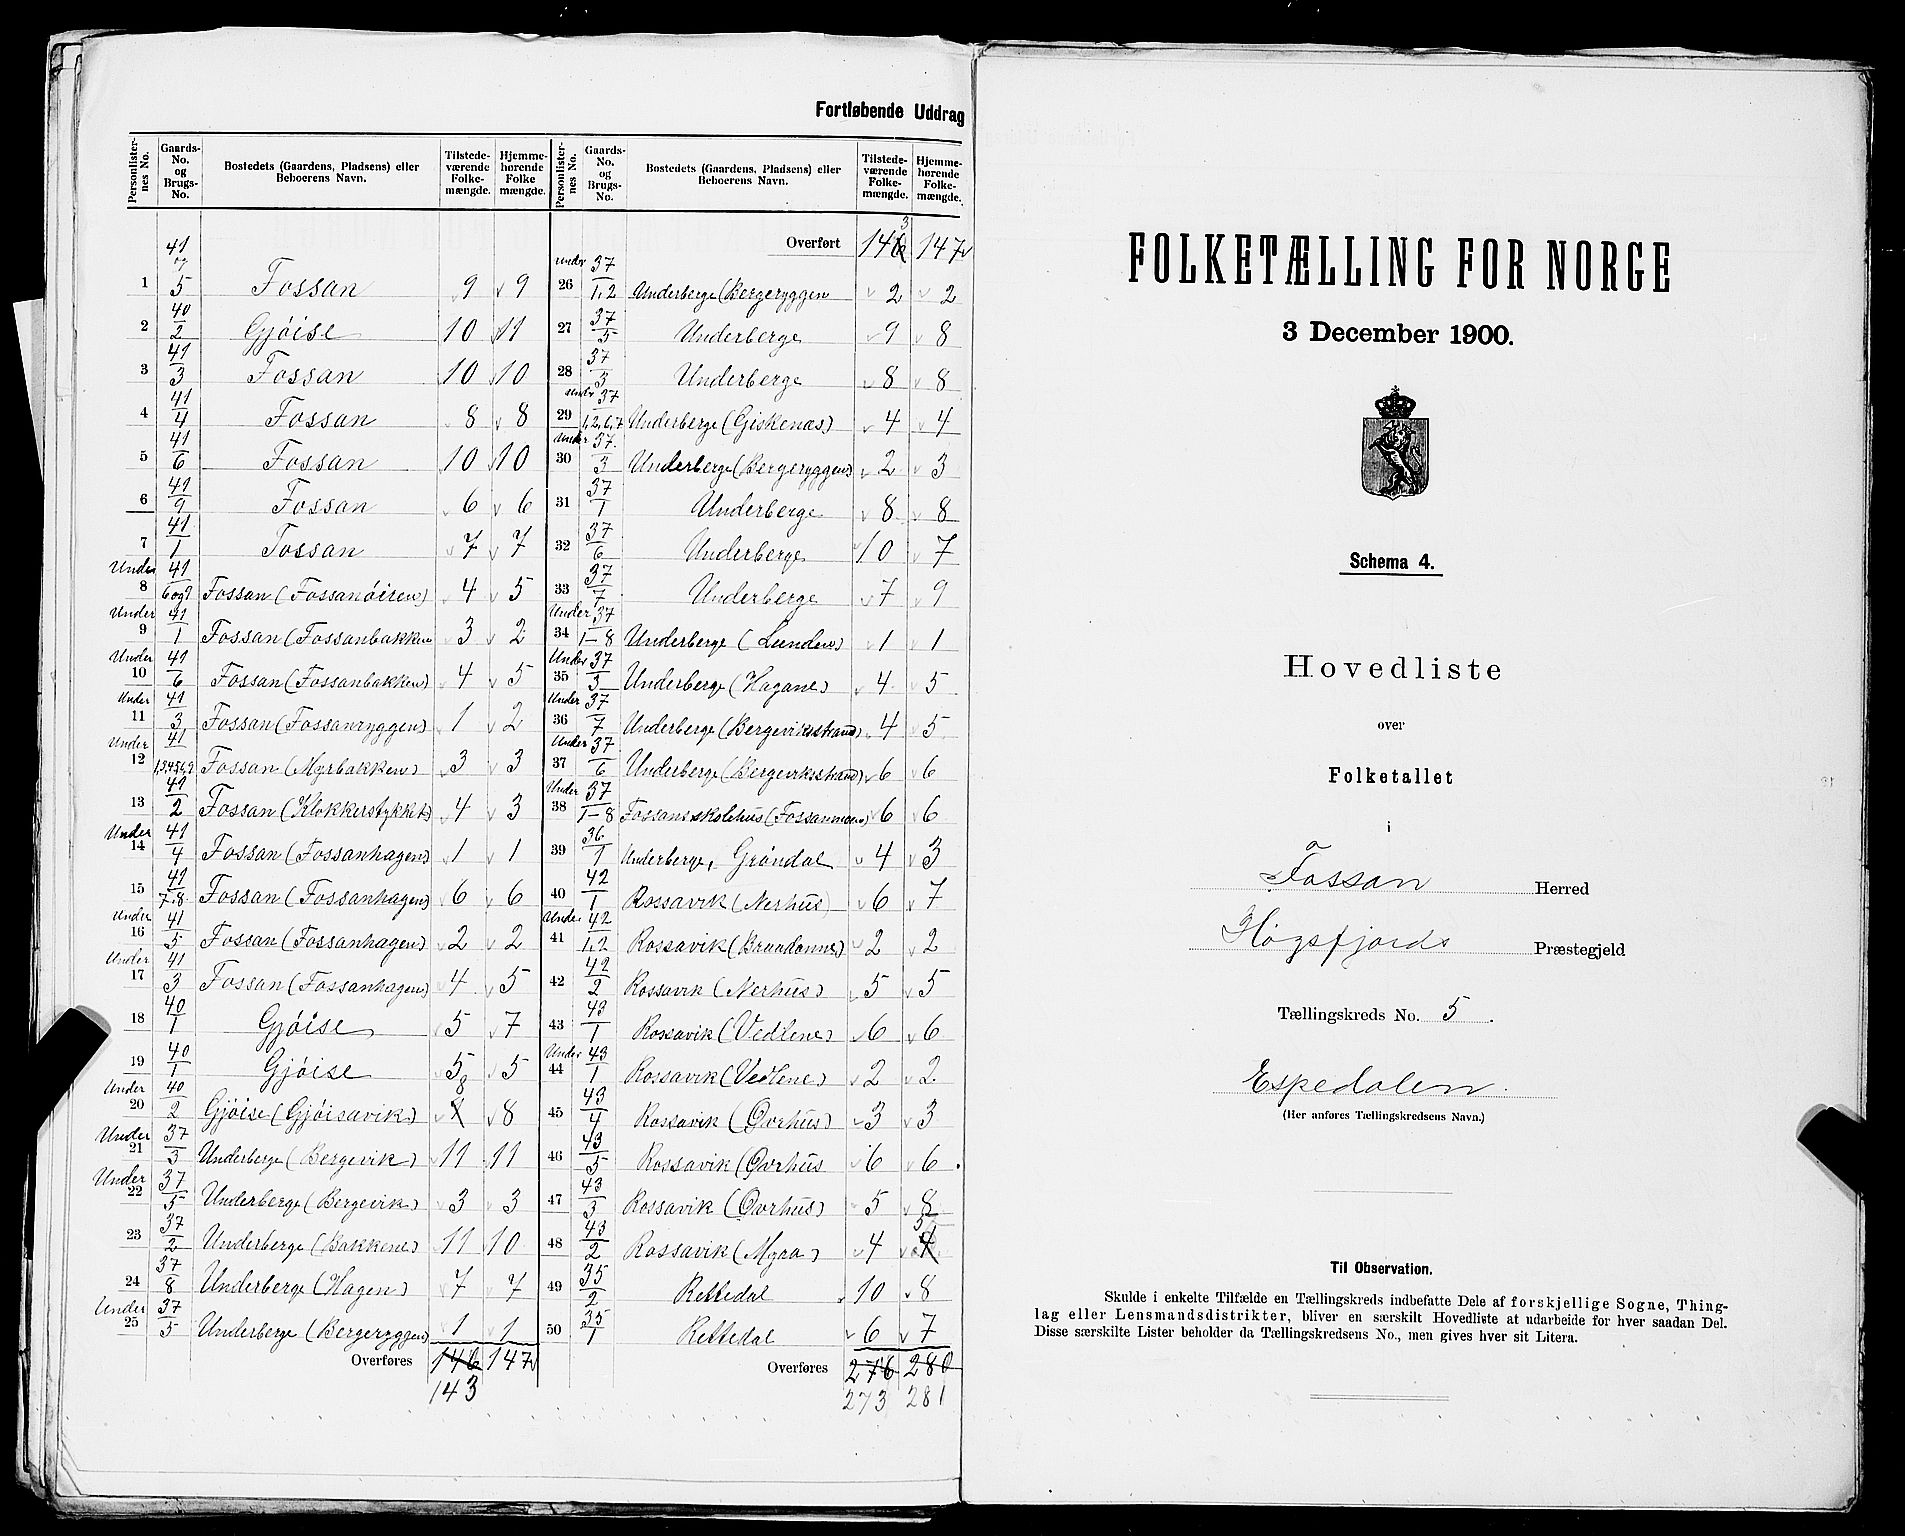 Fortløbende Uddrag
Personlister-nes No. | Gaards-No. og Brugs-No. | Bostedets (Gaardens, Pladsens) eller Beboerens Navn. | Tilstede-værende Folke-mængde. | Hjemme-hørende Folke mængde.
1 41/5 Fossan 9 9
2 40/2 Gjøise 10 11
3 41/3 Fossan 10 10
4 41/4 Fossan 8 8
5 41/6 Fossan 10 10
6 41/9 Fossan 6 6
7 41/1 Fossan 7 7
Under 8 41/6 og 9 Fossan (Fossanøisen) 4 5
Under 9 41/1 Fossan (Fossanbakken 3 2
Under 10 41/6 Fossan (Fossanbakken) 4 5
Under 11 41/3 Fossan (Fossanryggen) 1 2
Under 12 41/1,3,4,5,6,9 Fossan (Myrbakken) 3 3
13 41/2 Fossan (Klokkerstykket) 4 3
Under 14 41/4 Fossan (Fossanhagen) 1 1
15 41/7.8. Fossan (Fossanhagen) 6 6
Under 16 41/5 Fossan (Fossanhagen) 2 2
Under 17 41/3 Fossan (Fossanhagen) 4 5
18 40/1 Gjøise 5 7
19 40/1 Gjøise 5 5
Under 20 40/2 Gjøise (Gjøisavik) 8 8
Under 21 37/3 Underberge (Bergevik) 11 11
Under 22 37/5 Underberge (Bergevik) 3 3
23 37/2 Underberge (Bakkene) 11 10
24 37/8 Underberge (Hagen) 7 7
Under 25 37/5 Underberge (Bergeryggen) 1 1
Overføres 146 147
143
Personlister-nes No. | Gaards-No. og Brugs-No. | Bostedets (Gaardens, Pladsens) eller Beboerens Navn. | Tilstede-værende Folke-mængde. | Hjemme-hørende Folke-mængde.
Overført 143 147
under 26 37/1.2 Underberge (Bergeryggen 2 2
27 37/5 Underberge 9 8
28 37/3 Underberge 8 8
under 29 37/1,2,6,7 Underberge (Giskenæs) 4 4
Under 30 37/3 Underberge (Bergeryggen) 2 3
31 37/1 Underberge 8 8
32 37/6 Underberge 10 7
33 37/7 Underberge 7 9
Under 34 37/1-8 Underberge (Lunden) 1 1
Under 35 37/3 Underberge (Hagane) 4 5
Under 36 37/7 Underberge (Bergeviksstrand) 4 5
Under 37 37/6 Underberge (Bergeviksstrand) 6 6
Under 38 37/1-8 Fossansskolehus (Fossanmoen) 6 6
39 36/1 Underberge, Grøndal 4 3
40 42/1 Rossavik (Nerhus) 6 7
Under 41 42/1,2 Rossavik (Braadanne) 2 2
42 42/2 Rossavik (Nerhus) 5 5
43 43/1 Rossavik (Vedlene) 6 6
Under 44 43/1 Rossavik (Vedlene) 2 2
45 43/4 Rossavik (Øvrhus) 3 3
46 43/5 Rossavik (Øvrhus 6 6
47 43/3 Rossavik (Øvrhus) 5 8
48 43/2 Rossavik (Myra) 4 5
49 35/2 Rettedal 10 8
50 35/1 Rettedal 6 7
Overføres 276 280
273 281
FOLKETÆLLING FOR NORGE
3 December 1900.
Schema 4.
Hovedliste
over
Folketallet
i
Fossan Herred
Høgsfjords Præstegjeld
Tællingskreds No. 5.
Espedalen.
(Her anføres Tællingskredsens Navn.)
Til Observation.
Skulde i enkelte Tilfælde en Tællingskreds indbefatte Dele af forskjellige Sogne, Thing-
lag eller Lensmandsdistrikter, bliver en særskilt Hovedliste at udarbeide for hver saadan Del.
Disse særskilte Lister beholder da Tællingskredsens No., men gives hver sit Litera.